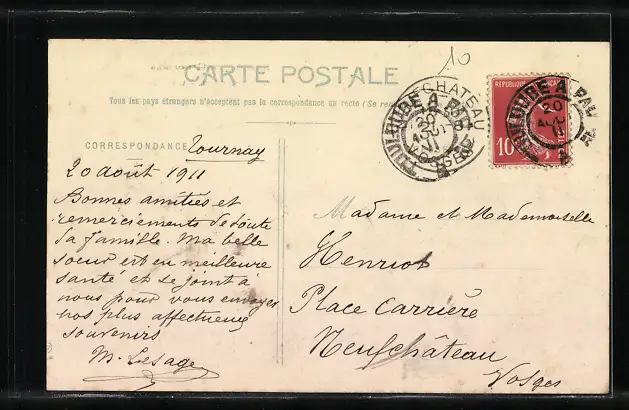 10
CARTE POSTALE
Tous les pays étrangers n'acceptent pas la correspondance au recto (Se
CORRESPONDANCE
Tournay
20 août 1911
Bonnes amitiés et
remerciements de toute
la famille. Ma belle
soeur est en meilleure
santé et se joint à
nous pour vous envoyer
nos plus affectueux
souvenirs
M. Lesage
NEUFCHATEAU
VOSGES
TOULOUSE A
20
AOUT
11
REPUBLIQUE FRANÇAISE
10
TOULOUSE A
20
11
Madame et Mademoiselle
Henriot
Place Carrière
Neufchâteau
Vosges